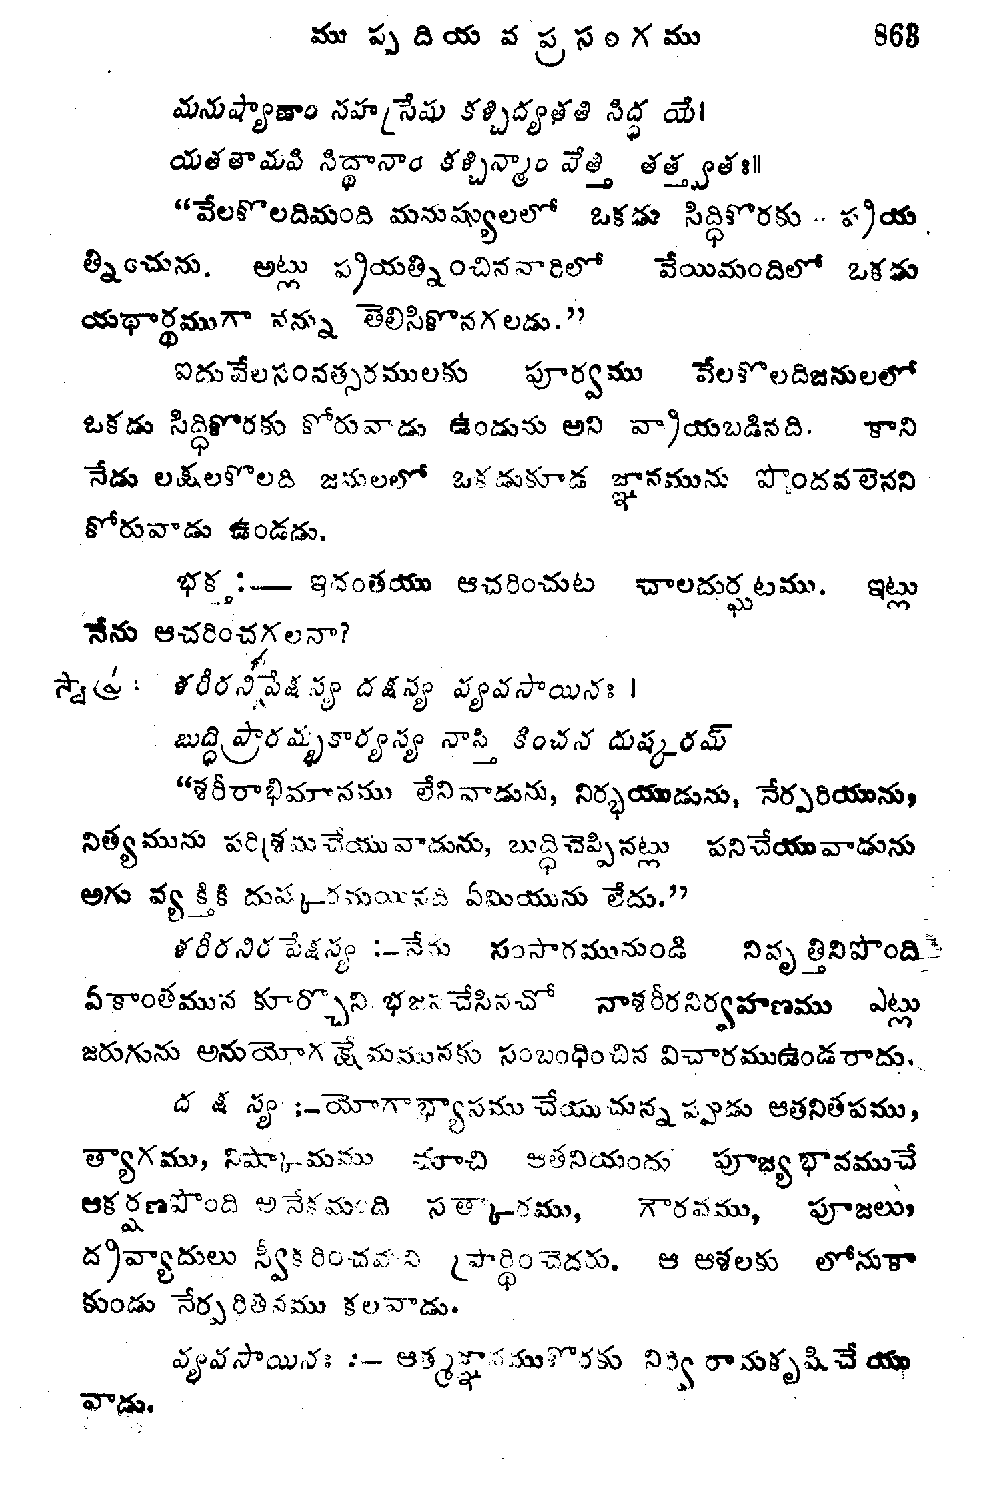 ముప్పదియవ ప్రసంగము 863
మనుష్యాణాం సహస్రేషు కశ్చిద్యతతి సిద్ధ యే।
యతతామపి సిద్ధానాం కశ్చిన్మాం వేత్తి తత్త్వతః॥
“వేలకొలదిమంది మనుష్యులలో ఒకడు సిద్ధికొరకు ప్రయ
త్నించును. అట్లు ప్రయత్నించినవారిలో వేయిమందిలో ఒకడు
యథార్థముగా నన్ను తెలిసికొనగలడు.”
ఐదువేలసంవత్సరములకు పూర్వము వేలకొలదిజనులలో
ఒకడు సిద్ధికొరకు కోరువాడు ఉండును అని వ్రాయబడినది. కాని
నేడు లక్షలకొలది జనులలో ఒకడుకూడ జ్ఞానమును పొందవలెనని
కోరువాడు ఉండడు.
భక్త:— ఇదంతయు ఆచరించుట చాలదుర్ఘటము. ఇట్లు
నేను ఆచరించగలనా?
స్వామి: శరీరనిరపేక్షస్య దక్షస్య వ్యవసాయినః ।
బుద్ధిప్రారమ్భకార్యస్య నాస్తి కించన దుష్కరమ్
“శరీరాభిమానము లేనివాడును, నిర్భయుడును, నేర్పరియును,
నిత్యమును పరిశ్రమచేయువాడును, బుద్ధిచెప్పినట్లు పనిచేయువాడును
అగు వ్యక్తికి దుష్కరమయినది ఏమియును లేదు.”
శరీరనిరపేక్షస్య :–నేను సంసారమునుండి నివృత్తినిపొంది
ఏకాంతమున కూర్చొని భజనచేసినచో నాశరీరనిర్వహణము ఎట్లు
జరుగును అనుయోగక్షేమమునకు సంబంధించిన విచారముఉండరాదు.
దక్షస్య :–యోగాభ్యాసము చేయుచున్నప్పుడు ఆతనితపము,
త్యాగము, నిష్కామము చూచి ఆతనియందు పూజ్యభావముచే
ఆకర్షణపొంది అనేకమంది సత్కారము, గౌరవము, పూజలు,
ద్రవ్యాదులు స్వీకరించవని ప్రార్థించెదరు. ఆ ఆశలకు లోనుకా
కుండు నేర్పరితనము కలవాడు.
వ్యవసాయినః :– ఆత్మజ్ఞానముకొరకు నిర్విరామకృషి చేయు
వాడు.